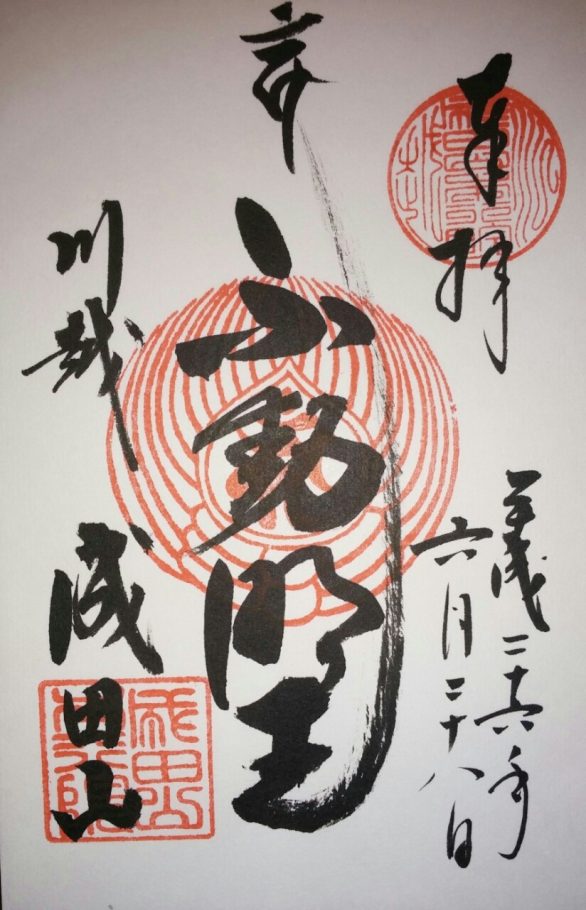 奉拝
平成二十六年
六月二十八日
不動明王
川越
成田山
成田山